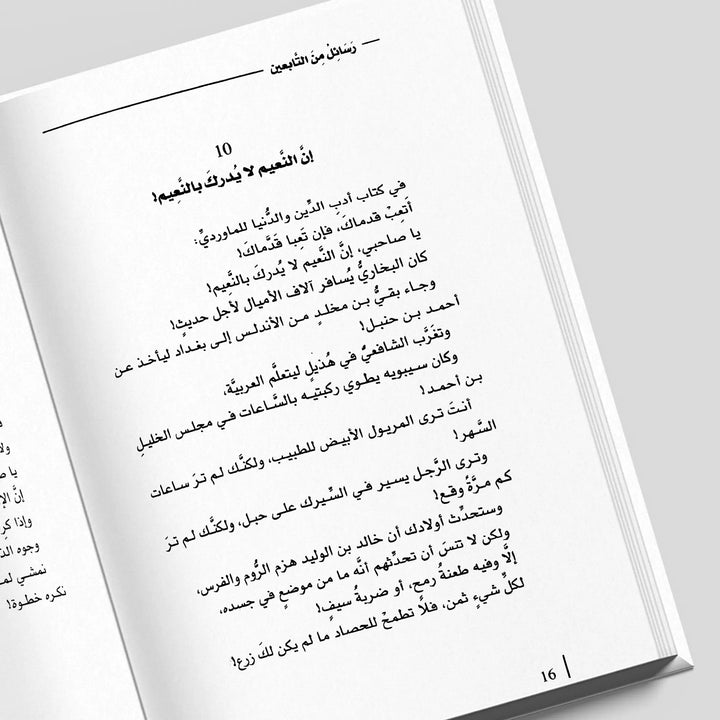 رَسَائِلْ مِنَ التَّابعين
10
إنَّ النَّعيم لا يُدركَ بالنَّعِيم!
في كتاب أدبِ الدِّين والدُّنيا للماورديِّ:
أَتعِبْ قدماكَ، فإن تَعِبا قَدَّماكَ!
يا صاحبي، إنَّ النَّعيم لا يُدركَ بالنَّعِيم!
كان البخاريُّ يُسافر آلاف الأميال لأجل حديثٍ!
وجاء بقيُّ بن مخلدٍ من الأندلس إلى بغداد ليأخذ عن
أحمد بن حنبل!
وتغَرَّب الشافعيُّ في هُذيلٍ ليتعلَّم العربيَّة،
وكان سيبويه يطوي ركبتيه بالسَّاعات في مجلس الخليلِ
بن أحمد!
أنتَ ترى المريول الأبيضَ للطبيب، ولكنَّك لم ترَ ساعات
السَّهر!
وترى الرَّجل يسير في السِّيرك على حبل، ولكنَّك لم ترَ
كم مرَّةً وقع!
وستحدِّث أولادك أن خالد بن الوليد هزم الرُّوم والفرس،
ولكن لا تنسَ أن تحدِّثهم أنَّه ما من موضعٍ في جسده،
إلَّا وفيه طعنةُ رمحٍ، أو ضربةُ سيفٍ!
لكلِّ شيءٍ ثمن، فلا تطمحْ للحصاد ما لم يكن لكَ زرع!
16
ولا
يا ص
إنَّ الإ
وإذا كرِ
وجوه الذ
نمشي لمـ
نكره خطوة!